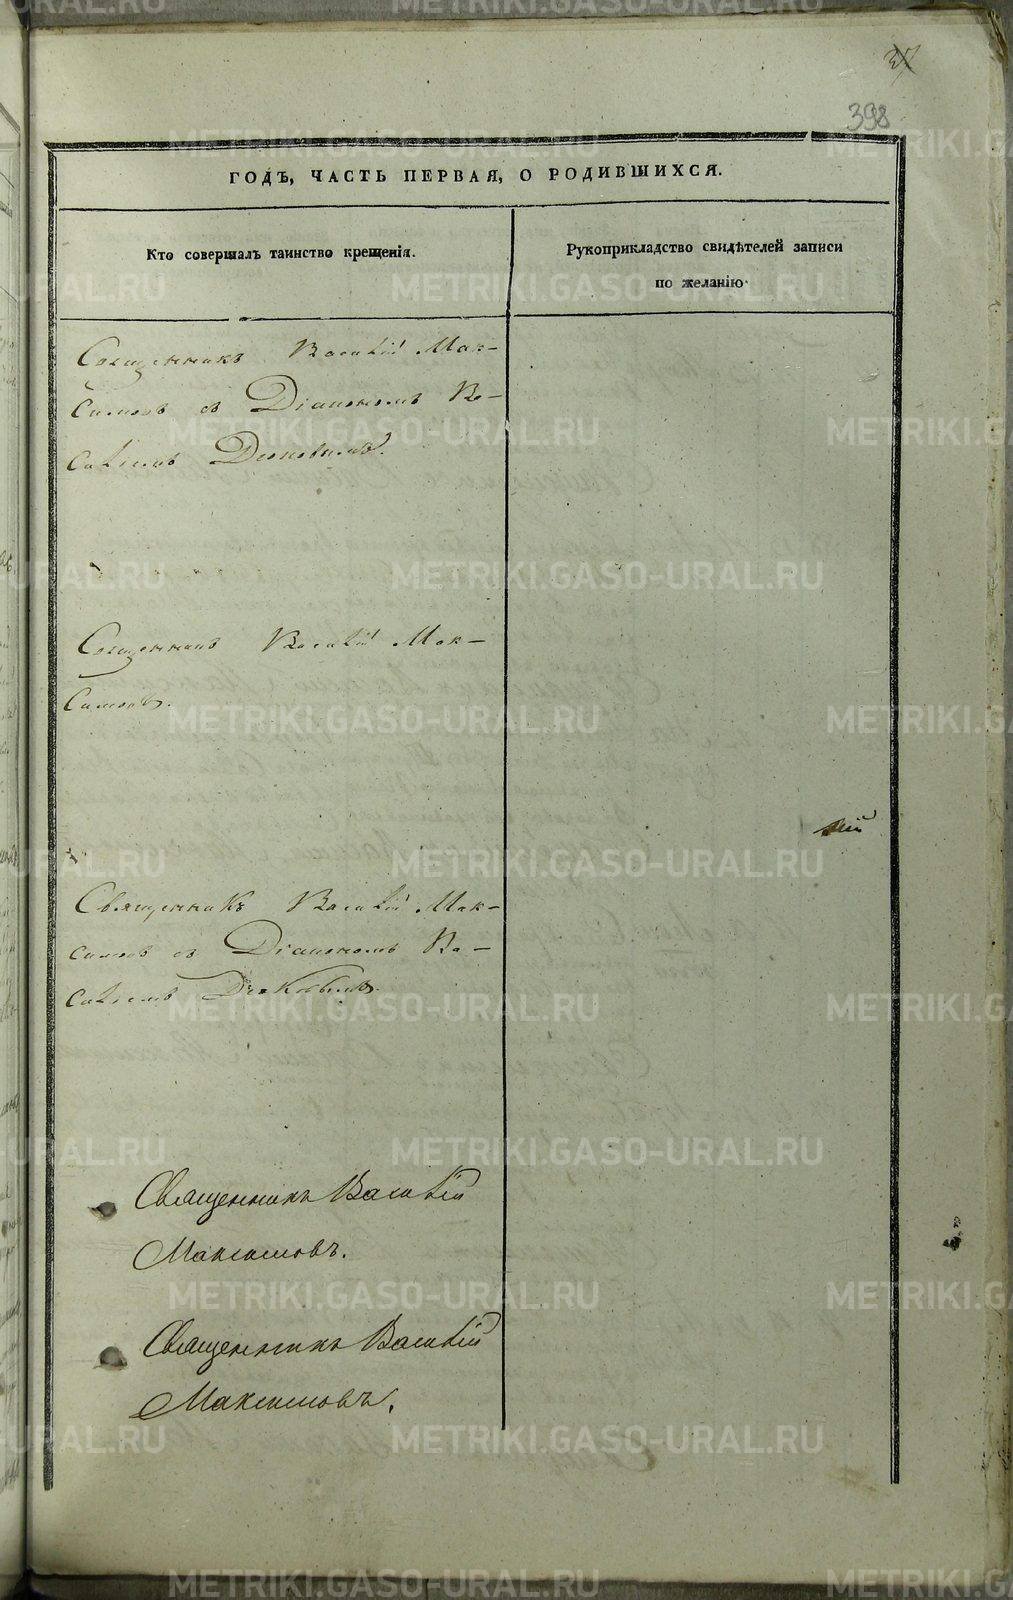 37
398
ГОДЪ, ЧАСТЬ ПЕРВАЯ, О РОДИВШИХСЯ.
Кто совершалъ таинство крещенія.
Рукоприкладство свидѣтелей записи
по желанію
Священникъ Василій Мак-
симовъ съ Діакономъ Ва-
силіемъ
Священникъ Василій Мак-
симовъ.
Священникъ Василій Мак-
симовъ съ Діакономъ Ва-
силіемъ
Священникъ Василій
Максимовъ.
Священникъ Василій
Максимовъ.
METRIKI.GASO-URAL.RU